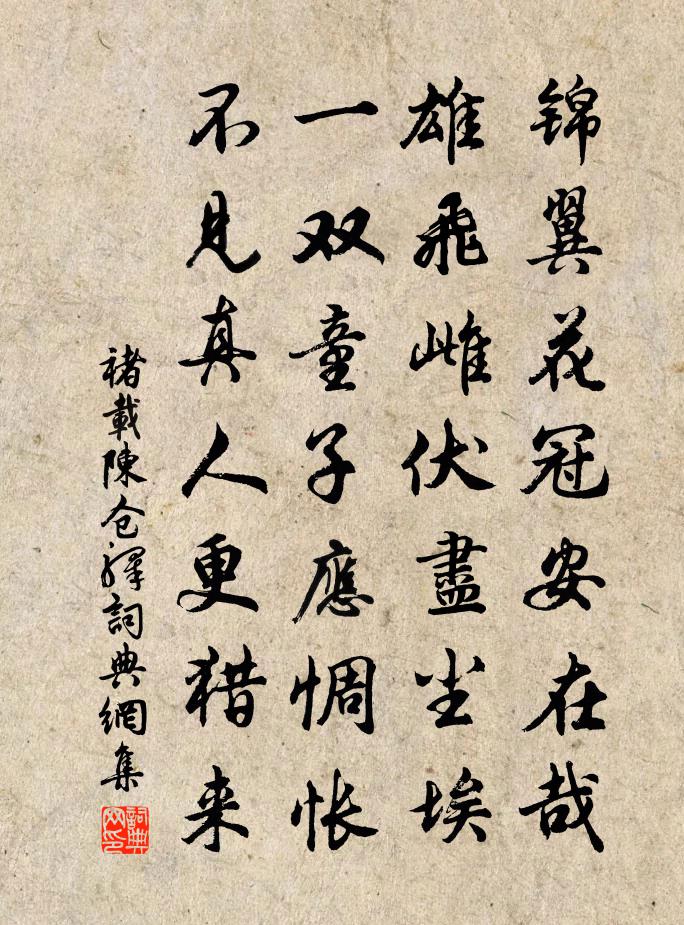 锦翼花冠安在哉
雄飛雌伏盡尘埃
一双童子應惆怅
不见真人更猎来
褚載陳仓驛詞典網集
詞典
网印